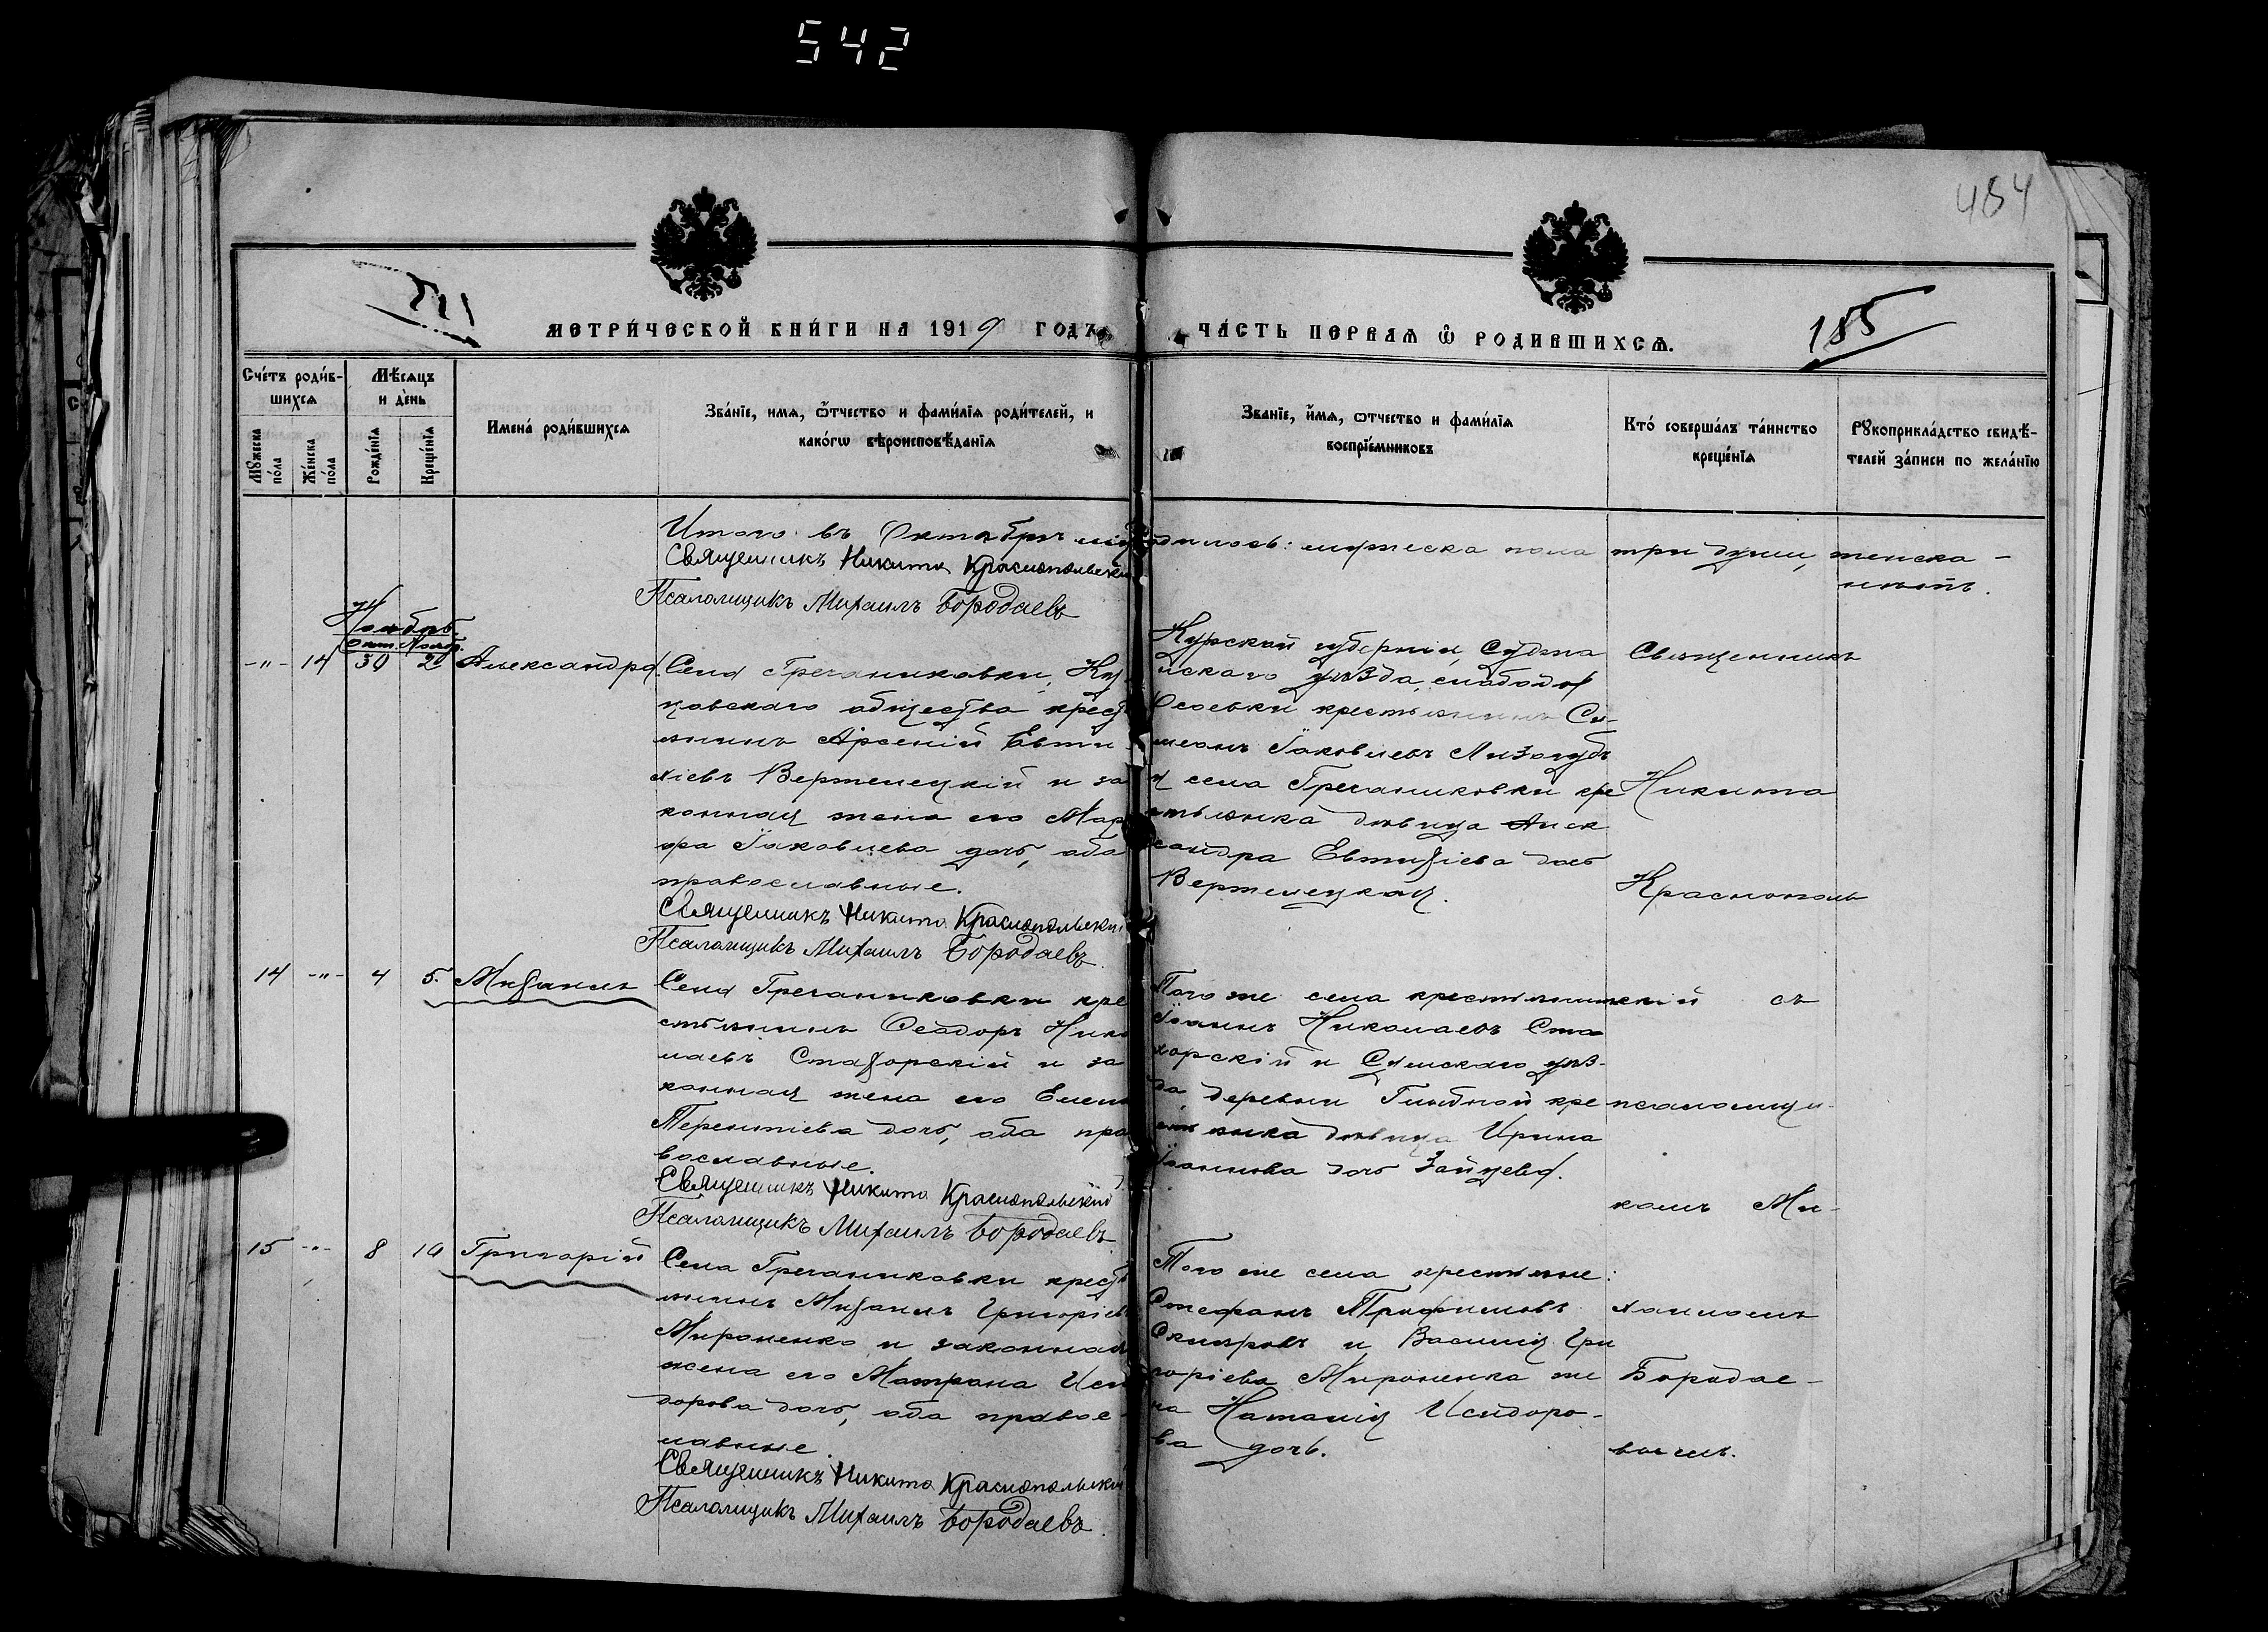 542
454
МЕТРИ́ЧЕСКОЙ КНИ́ГИ НА 1919 ГОДЪ,
ЧА́СТЬ ПЕРВАѦ Ѽ РОДИВШИХСѦ.
185
Сче́тъ роди́в-
шихсѧ
Мꙋжеска
по́ла
Же́нска
по́ла
Мѣ́сѧцъ
и де́нь
Рожде́нїѧ
Креще́нїѧ
Имена́ роди́вшихсѧ
Зва́нїе, имѧ, ѻ́тчество и фами́лїѧ роди́телей, и
како́гѡ вѣроисповѣ́данїѧ
Зва́нїе, и́мѧ, ѻтчество и фами́лїѧ
воспрїе́мниковъ
Кто́ соверша́лъ та́инство
креще́нїѧ
Рꙋкоприкла́дство свидѣ́-
телей за́писи по жела́нїю
Итого въ Октябрѣ родилось: мужеска пола три души, женска -
нѣтъ.
Священникъ Никита Краснопольскій
Псаломщикъ Михаилъ Бородаевъ
Ноябрь.
Окт. Нояб.
-"- 14 30 2 Александра.
Села Гречаниковки, Ку-
цовскаго общества крест
янинъ Арсеній Евти
хіевъ Вертелецкій и за
конная жена его Мар
ѳа Іаковлева дочь, оба
православные.
Священникъ Никита Краснопольскій
Псаломщикъ Михаилъ Бородаевъ
Курской губерніи, Суджа
нскаго уѣзда, слободы
крестьянинъ Си-
меонъ Іаковлевъ Лизогубъ
и села Гречаниковки кре
стьянка дѣвица Алек
сандра Евтихіева дочь
Вертелецкая.
Священникъ
Никита
Краснополь
14 -"- 4 5. Михаилъ
Села Гречаниковки кре
стьянинъ Ѳеодоръ Нико
лаевъ Стахорскій и за
конная жена его Елена
Терентіева дочь, оба пра
вославные.
Священникъ Никита Краснопольскій
Псаломщикъ Михаилъ Бородаевъ
Того же села крестьянинъ
Іоаннъ Николаевъ Ста
хорскій и Сумскаго уѣз-
да, деревни кре
стьянка дѣвица Ирина
Іоаннова дочь Зайцева.
скій съ
псаломщи-
комъ Ми-
15 -"- 8 10 Григорій
Села Гречаниковки крест
янинъ Михаилъ Григоріевъ
Мироненко и законная
жена его Матрона Иси
дорова дочь, оба правос-
лавные.
Священникъ Никита Краснопольскій
Псаломщикъ Михаилъ Бородаевъ
Того же села крестьяне:
Стефанъ Трофимовъ
и Василія Гри
горіева Мироненка же
на Наталія Исидоро-
ва дочь.
хаиломъ
Бородае-
вымъ.